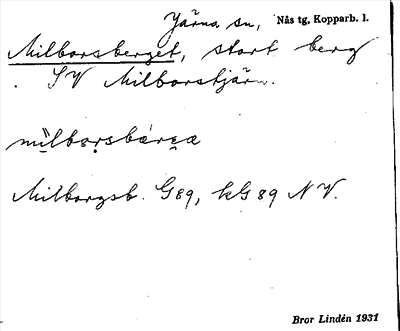 Järna sn, Nås tg, Kopparb. l.
Milborsberget, stort berg
SV Milborstjärn.
mìlbarsbæ̀rɛæ
Milborgsb. G89, kG 89 NV.
Bror Lindén 1931